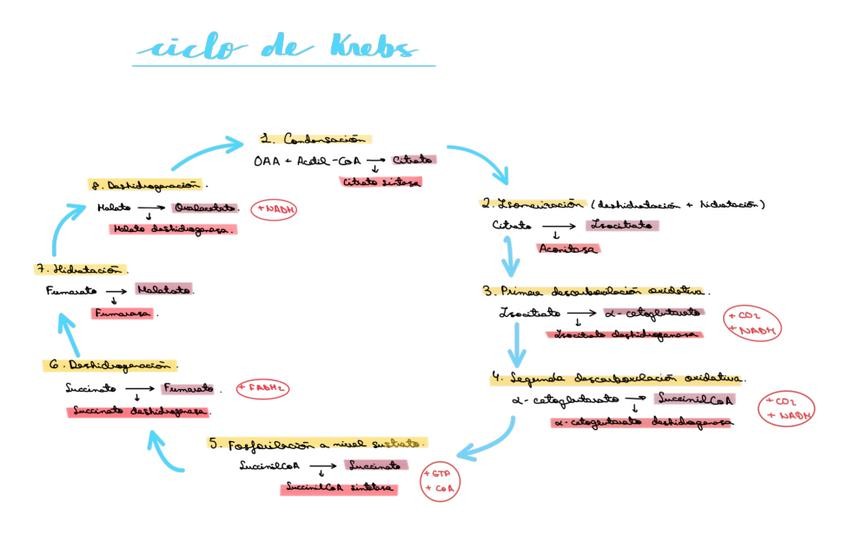 ciclo de Krebs
1. Condensación
OAA + Acetil-CoA → Citrato
↓
Citrato sintasa
2. Isomeización (deshidratación + hidratación)
Citrato → Isocitrato
↓
Aconitasa
3. Primera descarboxilación oxidativa.
Isocitrato → α-cetoglutarato
↓
Isocitrato deshidrogenasa
+ CO2
+ NADH
4. Segunda descarboxilación oxidativa.
α-cetoglutarato → SuccinilCoA
↓
α-cetoglutarato deshidrogenasa
+ CO2
+ NADH
5. Fosforilación a nivel sustrato.
SuccinilCoA → Succinato
↓
SuccinilCoA sintetasa
+ GTP
+ CoA
6. Deshidrogenación.
Succinato → Fumarato.
↓
Succinato deshidrogenasa.
+ FADH2
7. Hidratación.
Fumarato → Malatato.
↓
Fumarasa.
8. Deshidrogenación.
Malato → Oxalacetato.
↓
Malato deshidrogenasa.
+ NADH